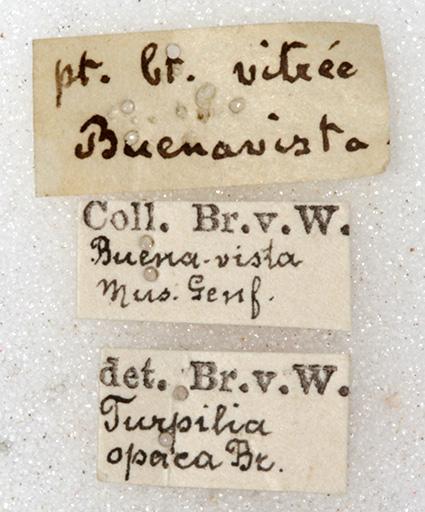 pt. br. vitrée
Buenavista.
Coll. Br.v.W.
Buena-vista
Mus. Genf.
det. Br.v.W.
Turpilia
opaca Br.